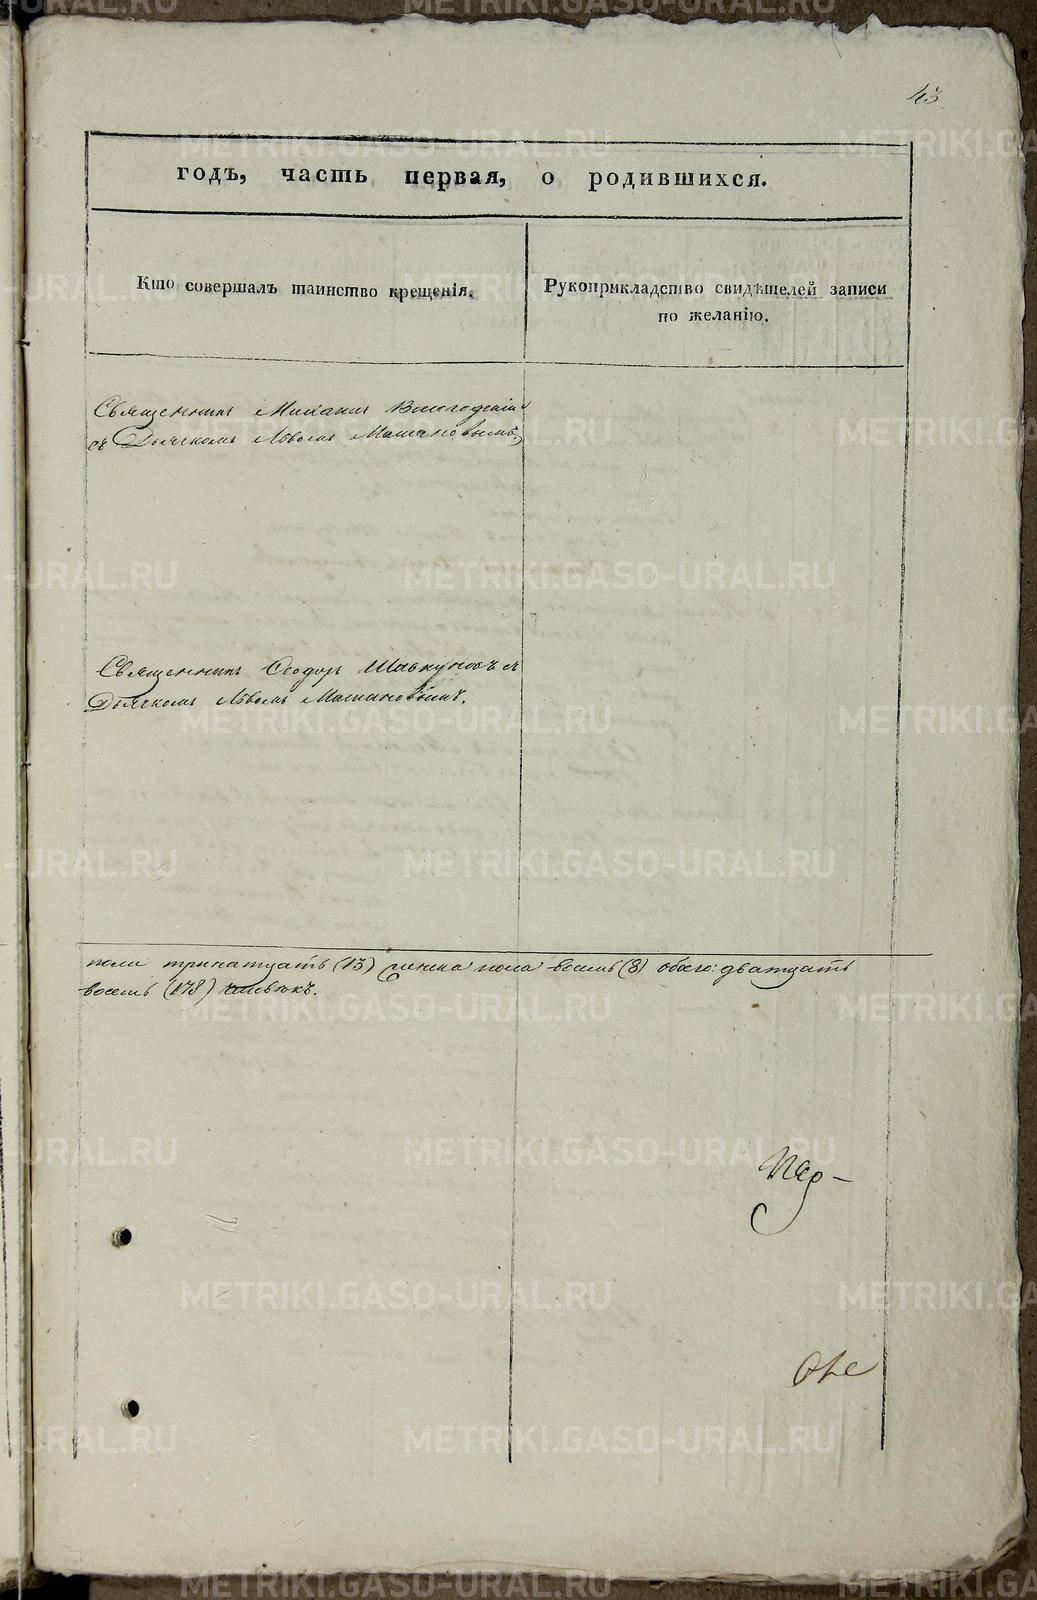 43
годъ, часть первая, о родившихся.
Кто совершалъ таинство крещенія.
Рукоприкладство свидѣтелей записи
по желанію.
Священникъ Михаилъ Вологодскій
съ Дьячкомъ Львомъ
Священникъ Ѳеодоръ Шавкуновъ съ
Дьячкомъ Львомъ
пола тринатцать (13) женска пола восемь (8) обоего: дватцать
восемь (178) человѣкъ.
METRIKI.GASO-URAL.RU